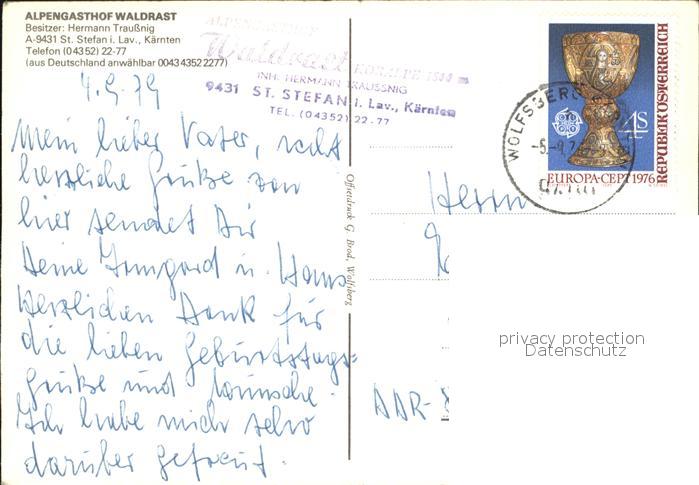 ALPENGASTHOF WALDRAST
Besitzer: Hermann Traußnig
A-9431 St. Stefan i. Lav., Kärnten
Telefon (04352) 22-77
(aus Deutschland anwählbar 0043 4352 2277)
ALPENGASTHOF
Waldrast KORALPE 1500 m
INH. HERMANN TRAUSSNIG
9431 ST. STEFAN i. Lav., Kärnten
TEL. (04352) 22-77
4.9.79
Mein lieber Vater, recht
herzliche Grüße von
hier sendet Dir
Deine Irmgard u. Hans
Herzlichen Dank für
die lieben Geburtstags-
grüße und wünsche.
Ich habe mich sehr
darüber gefreut.
Offsetdruck G. Brod, Wolfsberg
REPUBLIK ÖSTERREICH
4 S
EUROPA-CEPT 1976
WOLFSBERG
-5.-9.7
Herrn
DDR-
privacy protection
Datenschutz